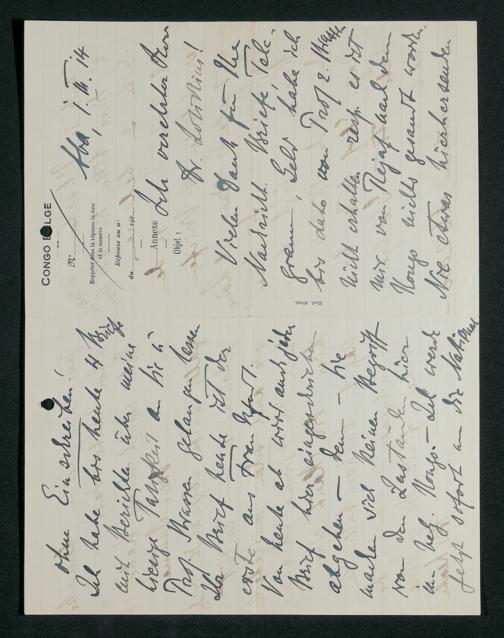 CONGO BELGE
Aba, 1. III. 14
N°
Rappeler dans la réponse la date
et le numéro
Réponse au n°
du 191
Annexe
Objet :
Sehr verehrter Herr
Dr. Lotichius!
Vielen Dank für Ihre
Nachricht. Briefe, Tele-
gramm, Geld habe ich
bis dato von Prof z. Strassen
nicht erhalten resp. es ist
mir von Rejaf nach dem
Kongo nichts gesandt worden.
Nie etwas hierhersenden
ohne Einschreiben!
Ich habe bis heute 4 Briefe
mit Berichten über meine
hiesige Tätigkeit an Sie u
Prof Strassen gelangen lassen
Ihr Brief heute ist der
erste aus Frankfurt.
Von heute ab wird auch jeder
Brief hier eingeschrieben
abgehen – denn – Sie
machen sich keinen Begriff
von den Zuständen hier
im belg. Kongo. – Ich werde
jetzt sofort an die National